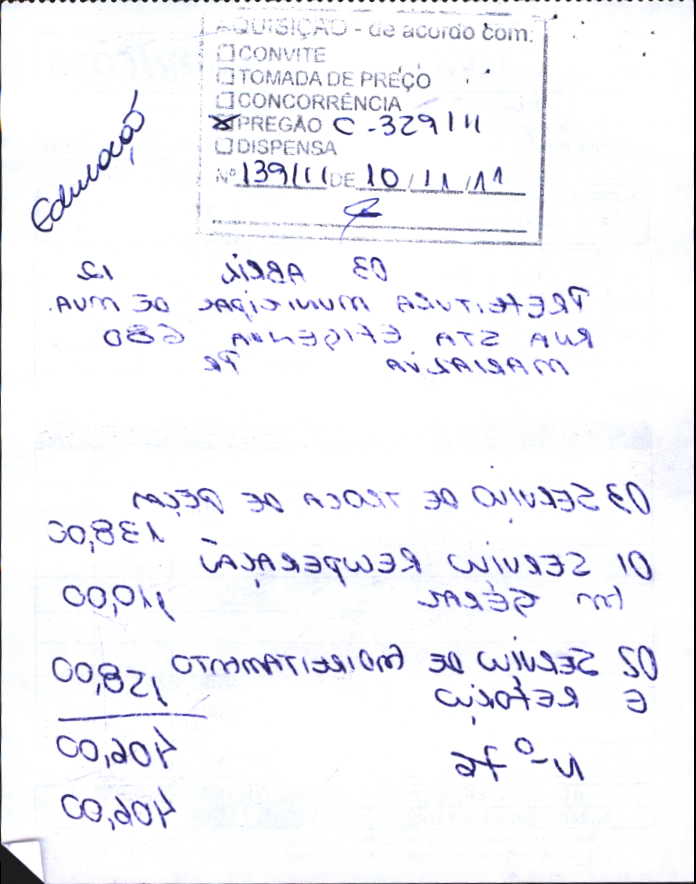 AQUISIÇÃO - de acordo com:
CONVITE
TOMADA DE PREÇO
CONCORRÊNCIA
PREGÃO C-329/11
DISPENSA
Nº 139/11 DE 10/11/11
Educação
03 ABRIL 12
PREFEITURA MUNICIPAL DE MVA.
RUA STA EFIGENIA 680
MARIALVA PR
03 SERVIÇO DE TROCA DE PEÇAS
138,00
01 SERVIÇO RECUPERAÇÃO
EM GERAL 110,00
02 SERVIÇO DE ENDIREITAMENTO 158,00
E REFORÇO
Nº 76 406,00
406,00